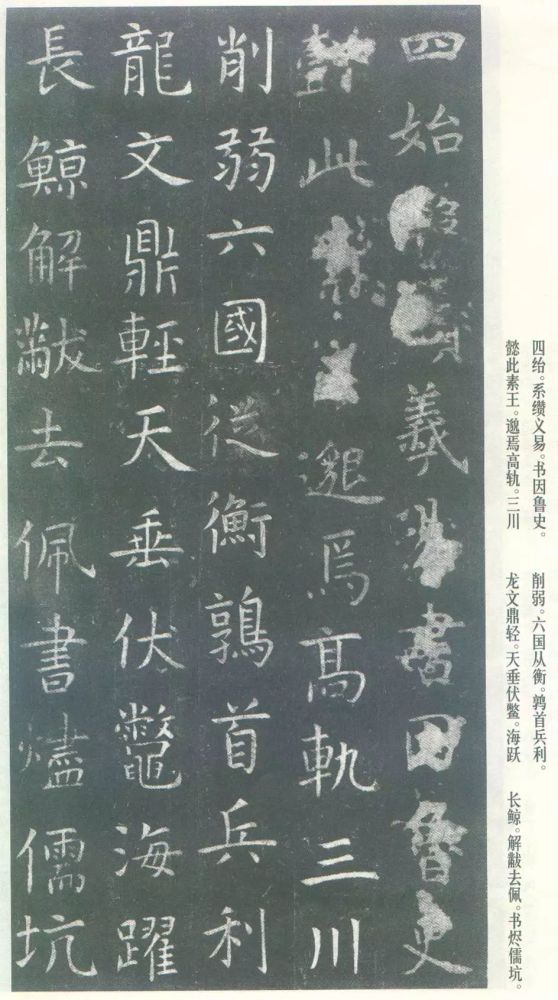 四始羲易書因魯史
懿此素王邈焉高軌三川
削弱六國從衡鶉首兵利
龍文鼎輕天垂伏鼈海躍
長鯨解黻去佩書燼儒坑
四绐。系缵义易。书因鲁史。
懿此素王。邈焉高轨。三川
削弱。六国从衡。鹑首兵利。
龙文鼎轻。天垂伏鳖。海跃
长鲸。解黻去佩。书烬儒坑。